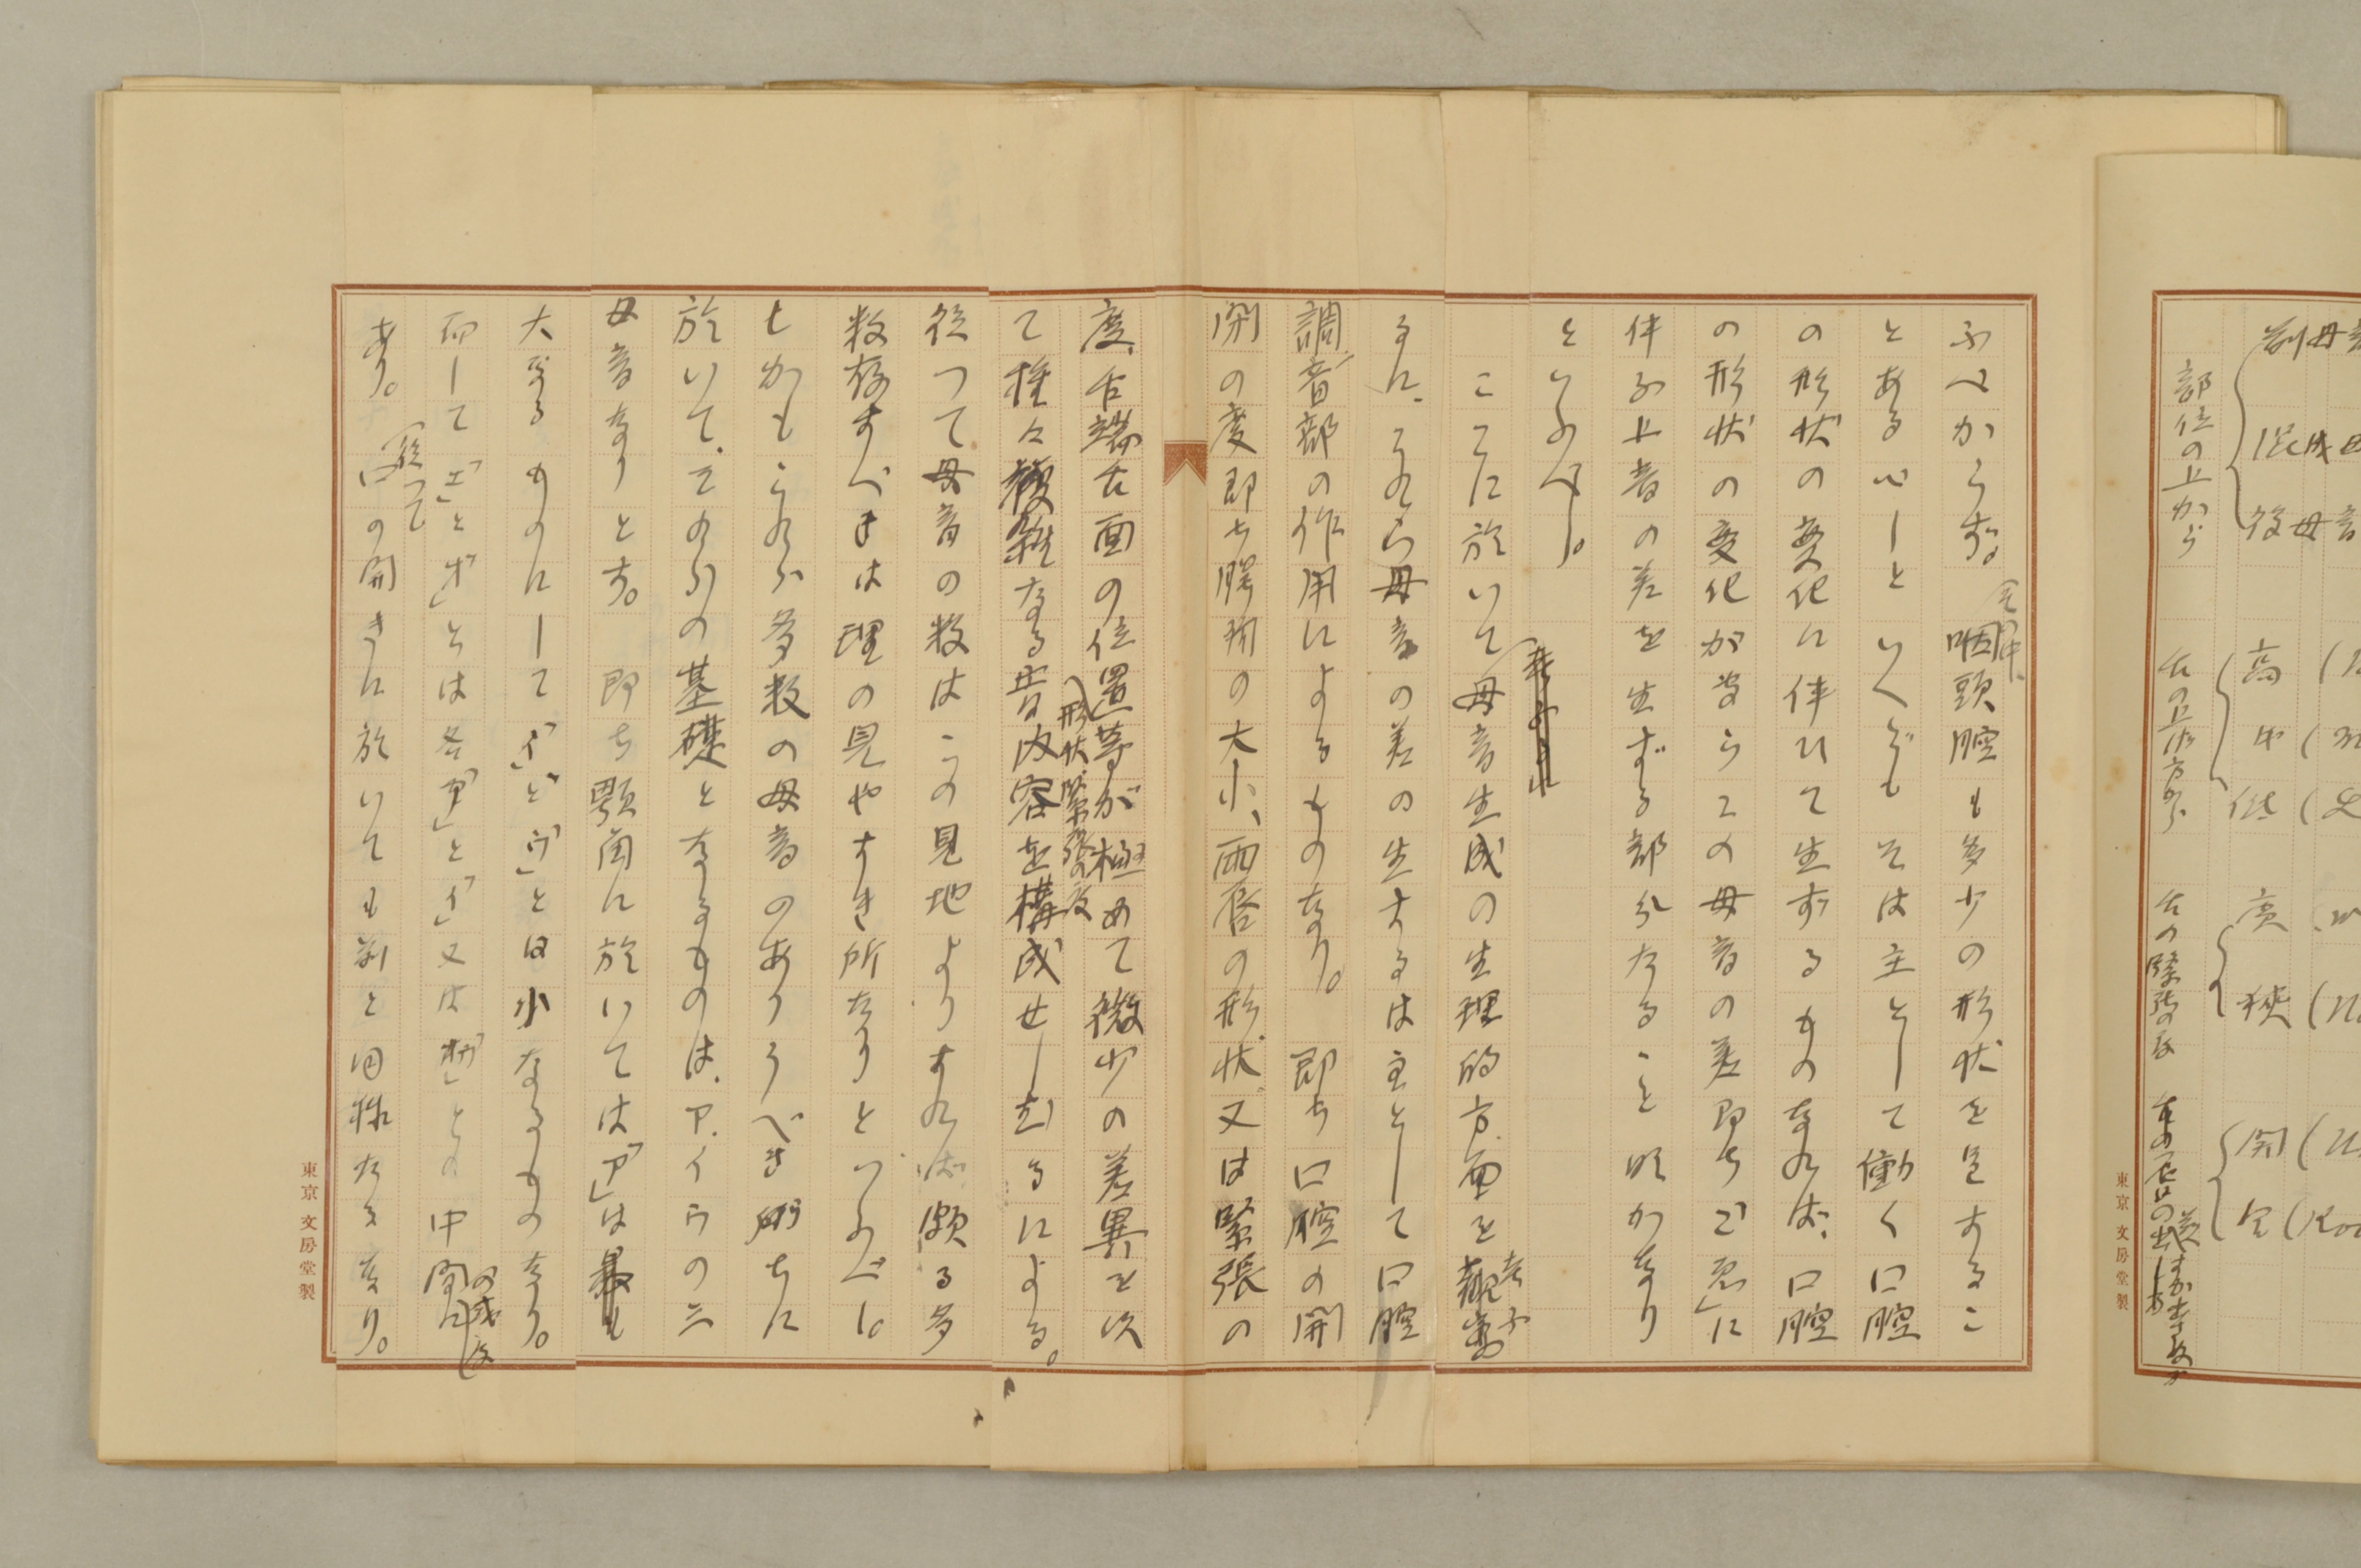 ふべからず。咽頭腔も多少の形状を呈するこ
とあるべしといへども そは主として働く口腔
の形状の変化に伴ひて生ずるものなれば、口腔
の形状の変化が専らこの母音の差即ち に
伴ふ上音の差を生ずる部分たること明かなり
といふべし。
ここに於いて母音生成の生理的方面を考ふ
るに、これら母音の差の生ずるは主として口腔
調音部の作用によるものなり。 即ち口腔の開
閉の度即ち腭角の大小、両唇の形状、又は緊張の
度、舌端舌面の位置形状、緊張の度等が極めて微少の差異を以
て種々複雑なる音内容を構成せしむるによる。
従つて母音の数はこの見地よりすれば頗る多
数存すべきは理の見やすき所なりといふべし。
しかもこれら多数の母音のありうべき所ちに
於いて、そのうちの基礎となるものは、ア、イ、ウの三
母音なりとす。 即ち顎角に於いては「ア」は最も
大なるものにして「イ」と「ウ」とは小なるものなり。
而して「エ」と「オ」とは各「ア」と「イ」又は「ウ」との中間の感じ
あり。従つて口の開きに於いても亦と同様なるなり。
東京 文房堂製
前母音
混成母
後母音
部位の上から
高
中
低
舌の上下の方から
廣
狭
舌の緊張の度
開
東京 文房堂製